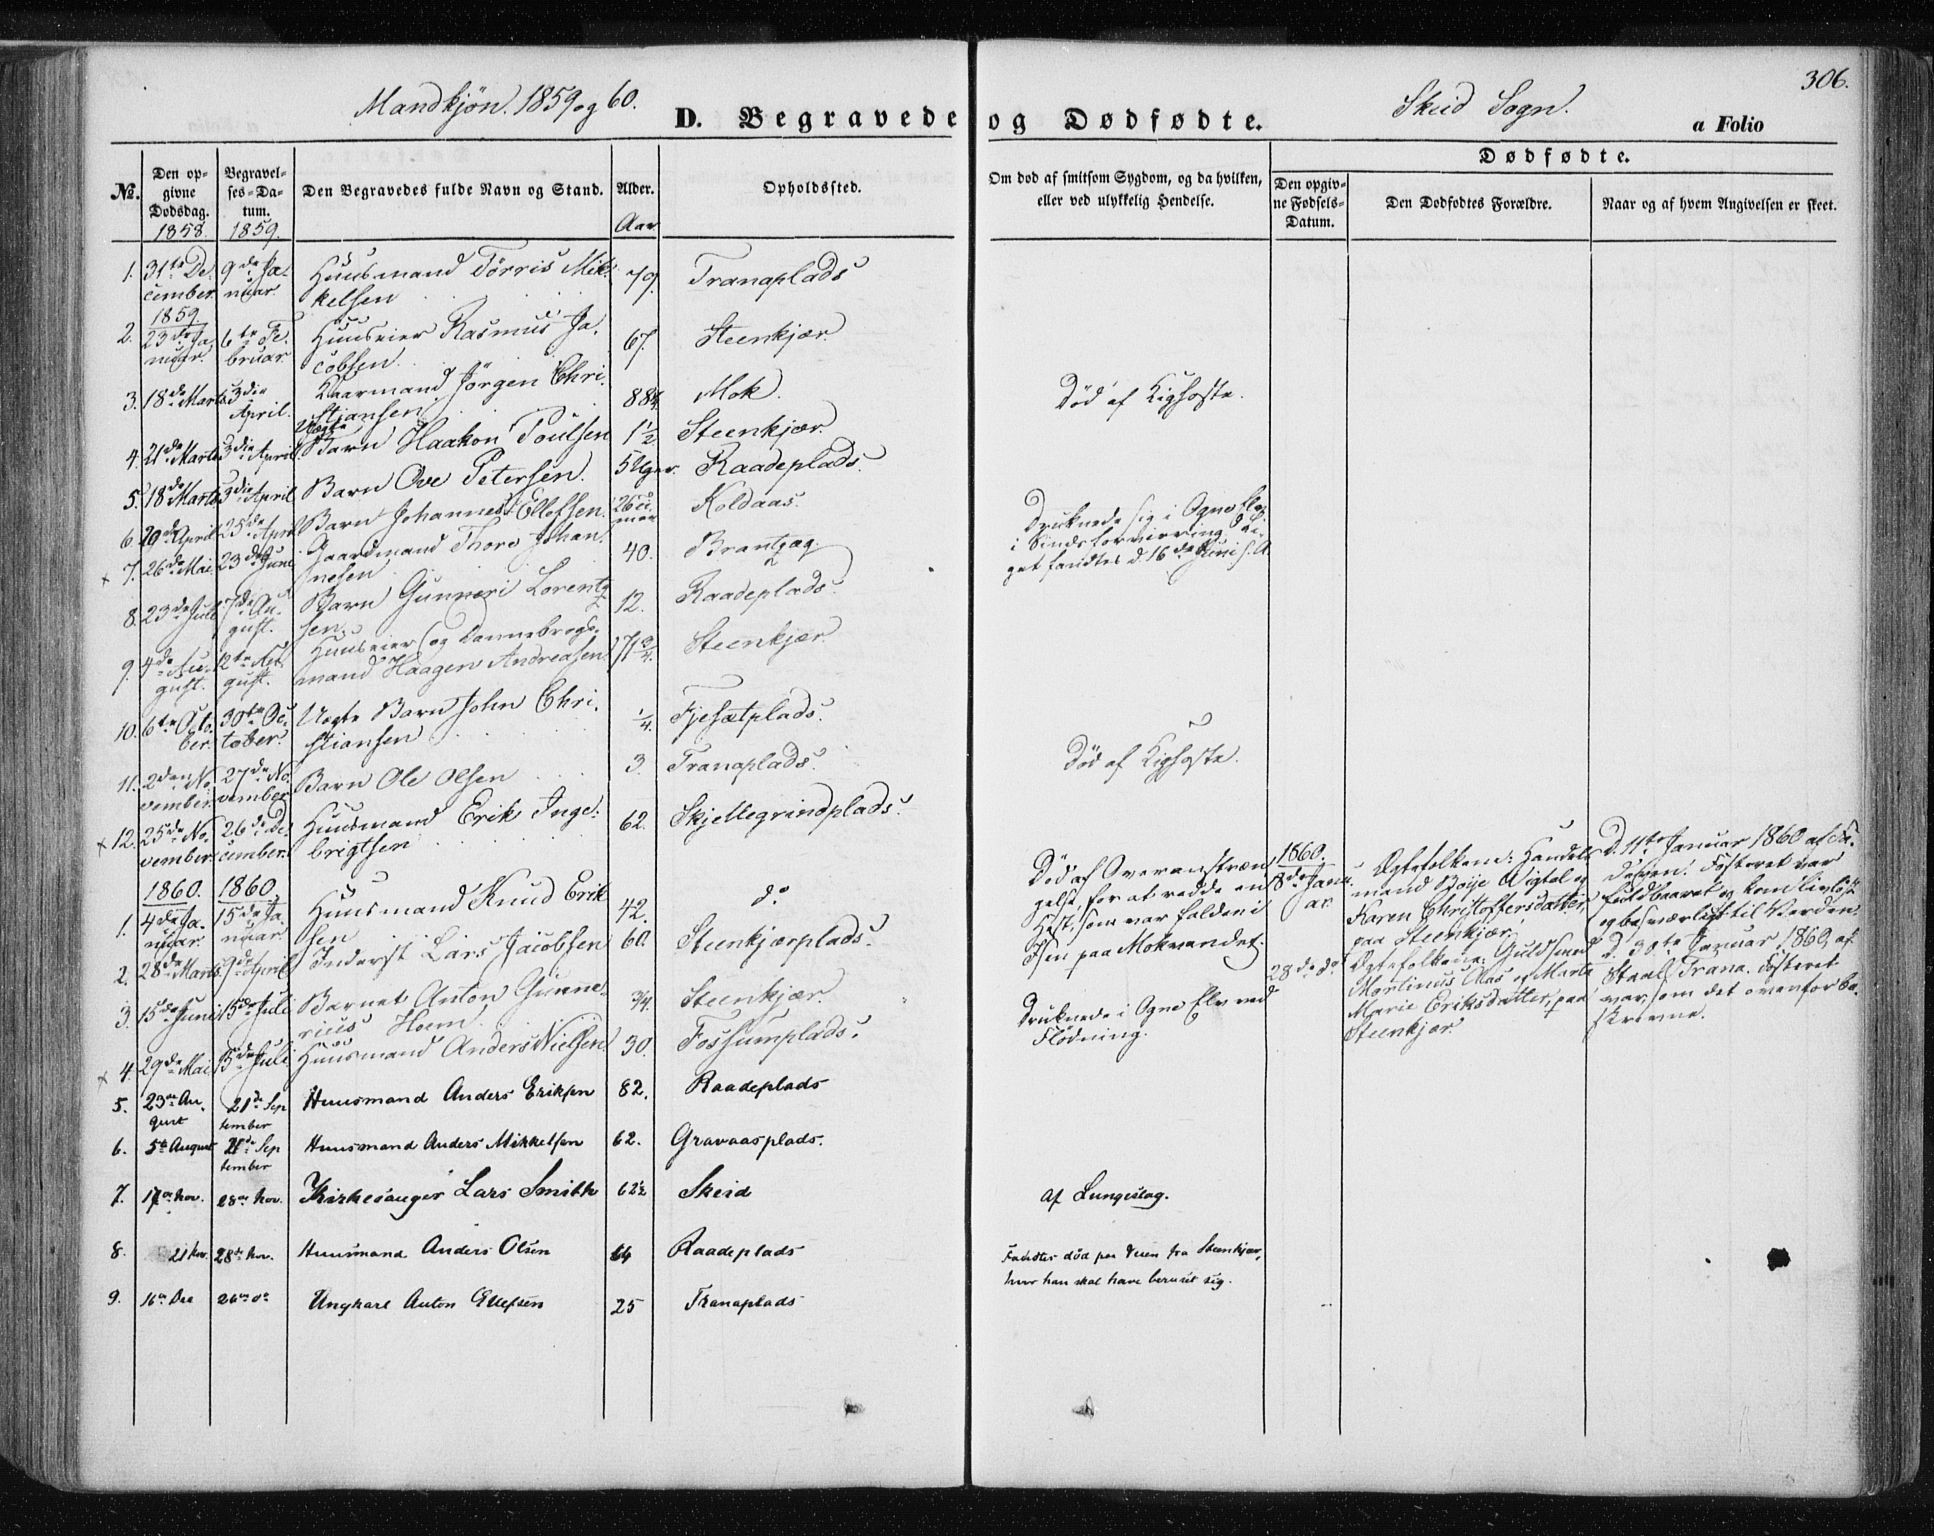 Mandkjøn. 1859 og 60.
D. Begravede og Dødfødte.
Skeid Sogn.
306.
a Folio
No.
Den opgivne Dødsdag. 1858.
Begravelses-Datum. 1859.
Den Begravedes fulde Navn og Stand.
Alder. Aar
Opholdssted.
Om død af smitsom Sygdom, og da hvilken, eller ved ulykkelig Hendelse.
Dødfødte.
Den opgivne Fødsels-Datum.
Den Dødfødtes Forældre.
Naar og af hvem Angivelsen er skeet.
1. 31te December 9de Januar. Huusmand Törris Mikkelsen 79. Tranaplads
1859.
2. 23de Januar. 6te Februar. Huuseier Rasmus Jacobsen. 67. Steenkjær.
3. 18de Marts 3die April. Kaarmand Jörgen Christiansen Mok.
4. 21de Marts 3die April Uægte Barn Haakon Poulsen 1½ Steenkjær. Död af Kighoste.
5. 18de Marts 3die April Barn Ove Petersen. 5 Uger. Raadeplads.
6. 20de April 25de April Barn Johannes Ellefsen. Koldaas.
x 7. 26de Mai 23de Juni Gaardmand Thore Johannesen 40. Druknede sig i Ogne Elv i Sindsforvirring. Liget fandtes d. 16de Juni s. A.
8. 23de Juli 7de August. Barn Gunneri Lorentzsen. 12. Raadeplads.
9. 4de August. 12te August. Huuseier og Dannebrogsmand Haagen Andreasen 71¾. Steenkjær.
10. 6te October. 30te October. Uægte Barn John Christiansen ¼. Fjesætplads.
11. 2den November 27de November Barn Ole Olsen 3. Tranaplads. Död af Kighoste.
x 12. 25de November 26de December. Huusmand Erik Ingebrigtsen 62. Skjellegrindplads.
1860. 1860.
1. 4de Januar. 15de Januar. Huusmand Knud Eriksen 42. do Död af Overanstrængelse, for at redde en Hest, som var falden i Isen paa Mokvandet.
1860. 8de Januar. Ægtefolkene: Handelsmand Boije Vigtel og Karen Christoffersdatter, paa Steenkjær. D. 11te Januar 1860 af Faderen. Fosteret var fuldbaaret og kom livlöst og besværligt til Verden.
2. 28de Marts 9de April Inderst Lars Jacobsen 60. Steenkjærplads.
28de do Ægtefolkene: Guldsmed Martinus Aas og Marte Marie Eriksdatter, paa Steenkjær D. 30te Januar 1860, af Trana. Fosteret var som det ovenfor beskrevne.
3. 15de Juni 15de Juli Barnet Anton Gunnerius Hoem. ¾. Steenkjær.
x 4. 29de Mai 15de Juli Huusmand Anders Nielsen 30. Fossumplads. Druknede i Ogne Elv ved Flödning.
5. 23de August 21de September Huusmand Anders Eriksen 82. Raadeplads
6. 5te August 21de September Huusmand Anders Mikkelsen 62. Gravaasplads.
7. 17de Nov. 28de Nov. Kirkesanger Lars Smith 62½ Skeid af Lungeslag.
8. 21 Nov. 28de Nov. Huusmand Anders Olsen 64 Raadeplads Fandtes död paa Veien fra Steenkjær, hvor han skal have beruset sig.
9. 16de Dec 26de do Ungkarl Anton Ellefsen 25 Tranaplads